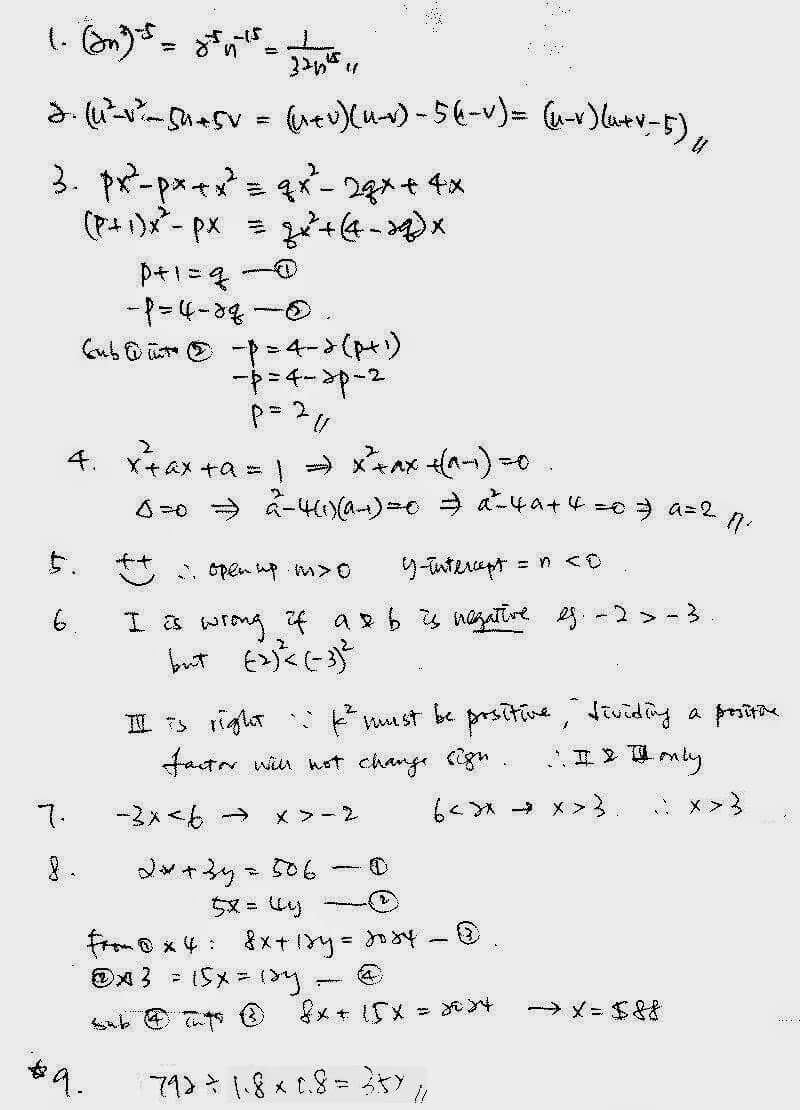 1. (2n³)⁻⁵ = 2⁻⁵n⁻¹⁵ = 1/32n¹⁵ //
2. (u²-v²-5u+5v = (u+v)(u-v)-5(u-v)= (u-v)(u+v-5) //
3. px²-px+x² ≡ qx²-2qx+4x
(p+1)x²-px ≡ qx²+(4-2q)x
p+1=q —①
-p=4-2q —②.
Sub ① into ② -p=4-2(p+1)
-p=4-2p-2
p=2 //
4. x²+ax+a=1 ⇒ x²+ax+(a-1)=0.
Δ=0 ⇒ a²-4(1)(a-1)=0 ⇒ a²-4a+4=0 ⇒ a=2 //.
5. ∴ open up m>0 y-intercept = n <0
6. I is wrong if a & b is negative eg. -2 > -3.
but (-2)²<(-3)²
III is right ∵ k² must be positive, dividing a positive
factor will not change sign. ∴ II & III only
7. -3x<6 → x>-2 6<2x → x>3. ∴ x>3
8. 2x+3y=506 —①
5x=4y —②
from ① x 4: 8x+12y=2024 —③.
② x 3 = 15x=12y —④
sub ④ into ③ 8x+15x=2024 → x=$88
*9. 792÷1.8x0.8=352 //